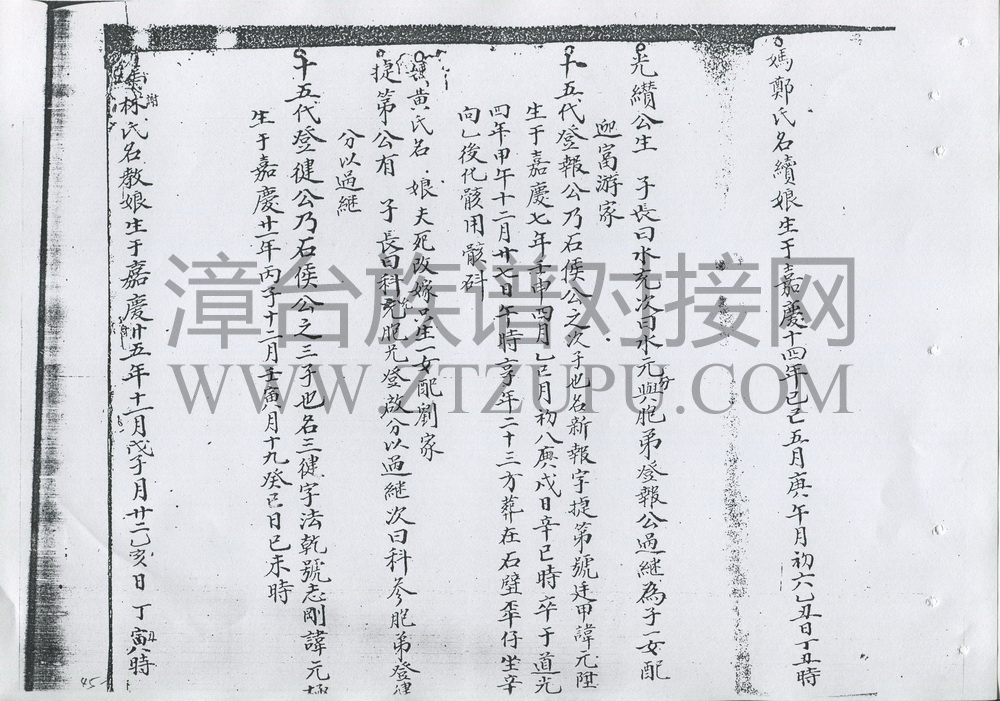 媽鄭氏名續娘生于嘉慶十四年己巳五月庚午月初六乙丑日丁丑時
光纘公生 子長曰水充次曰水元與胞弟登報公過継為子一女配
分
迎富游家
十五代登報公乃石侯公之次子也名新報字捷第號廷甲諱元陞
生于嘉慶七年壬申四月乙巳月初八庚戌日辛巳時卒于道光
四年甲午十二月廿七日午時享年二十三方葬在石壁 仔坐辛
向乙後化骸用骸
黄氏名 娘夫死改嫁只生一女配劉家
捷第公有 子長曰科 胞兄登啟分以過継次曰科參胞弟登健
分以過継
十五代登健公乃石侯公之三子也名三健字法乾號志剛諱元
生于嘉慶廿一年丙子十二月壬寅月十九癸巳日己未時
謝
林氏名教娘生于嘉慶廿五年十一月戊子月廿二乙亥日丁 時
丑
45
漳台族谱对接网
WWW.ZTZUPU.COM